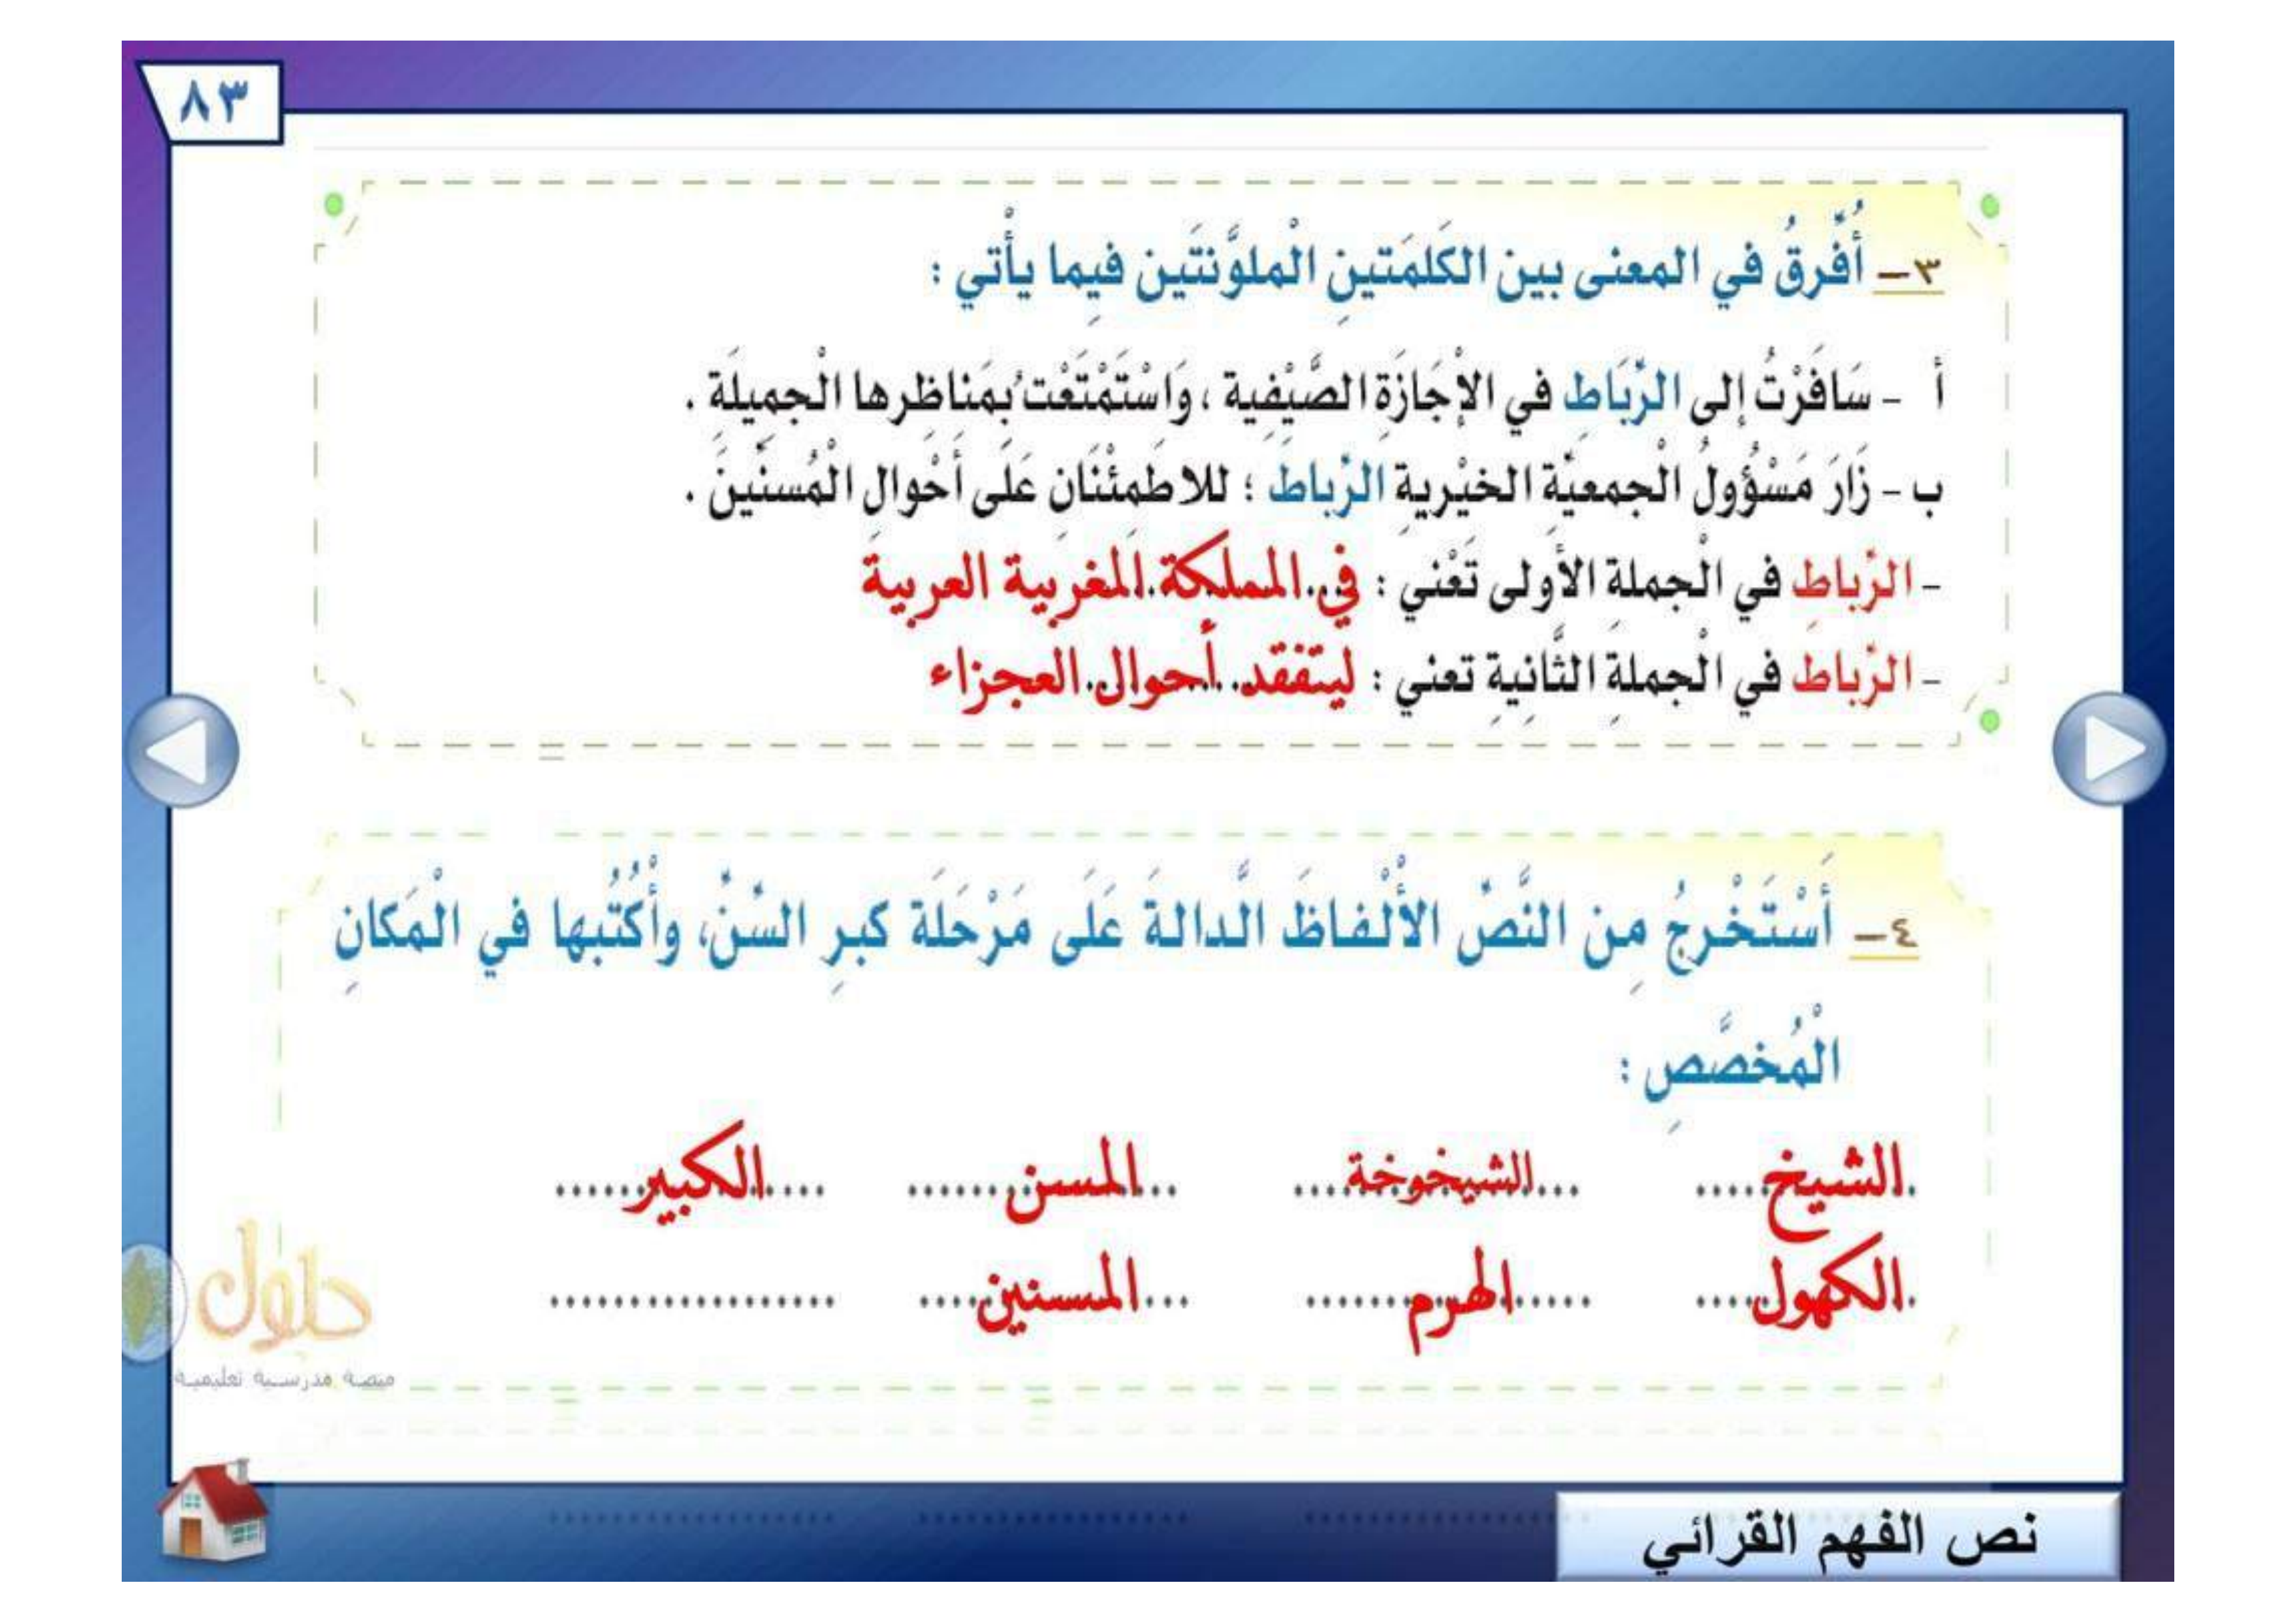 ٨٣
٣- أُفَرِّقُ في المعنى بين الكَلمَتينِ الْملوَّنتَين فيِما يأْتي :
أ - سَافَرْتُ إلى الرِّبَاطِ في الإْجَازَةِ الصَّيْفِية ، وَاسْتَمْتَعْتُ بِمَناظِرها الْجمِيلَةِ .
ب - زَارَ مَسْؤُولُ الْجمعيَّةِ الخيْريةِ الرِّباطَ ؛ للاطمِئْنَانِ عَلَى أَحْوالِ الْمُسنِّينَ .
- الرِّباطِ في الْجملةِ الأَولى تَعْني : في المملكة المغربية العربية
- الرِّباطَ في الْجملةِ الثَّانِيةِ تعني : ليتفقد أحوال العجزاء
٤- أَسْتَخْرِجُ مِن النَّصِّ الأْلْفاظَ الَّدالةَ عَلَى مَرْحَلَة كبرِ السِّنِّ، وأَكْتُبها في الْمَكانِ
الْمُخصَّصِ :
الشيخ الشيخوخة المسن الكبير
الكهول الهرم المسنين
حلول
منصة مدرسية تعليمية
نص الفهم القرائي